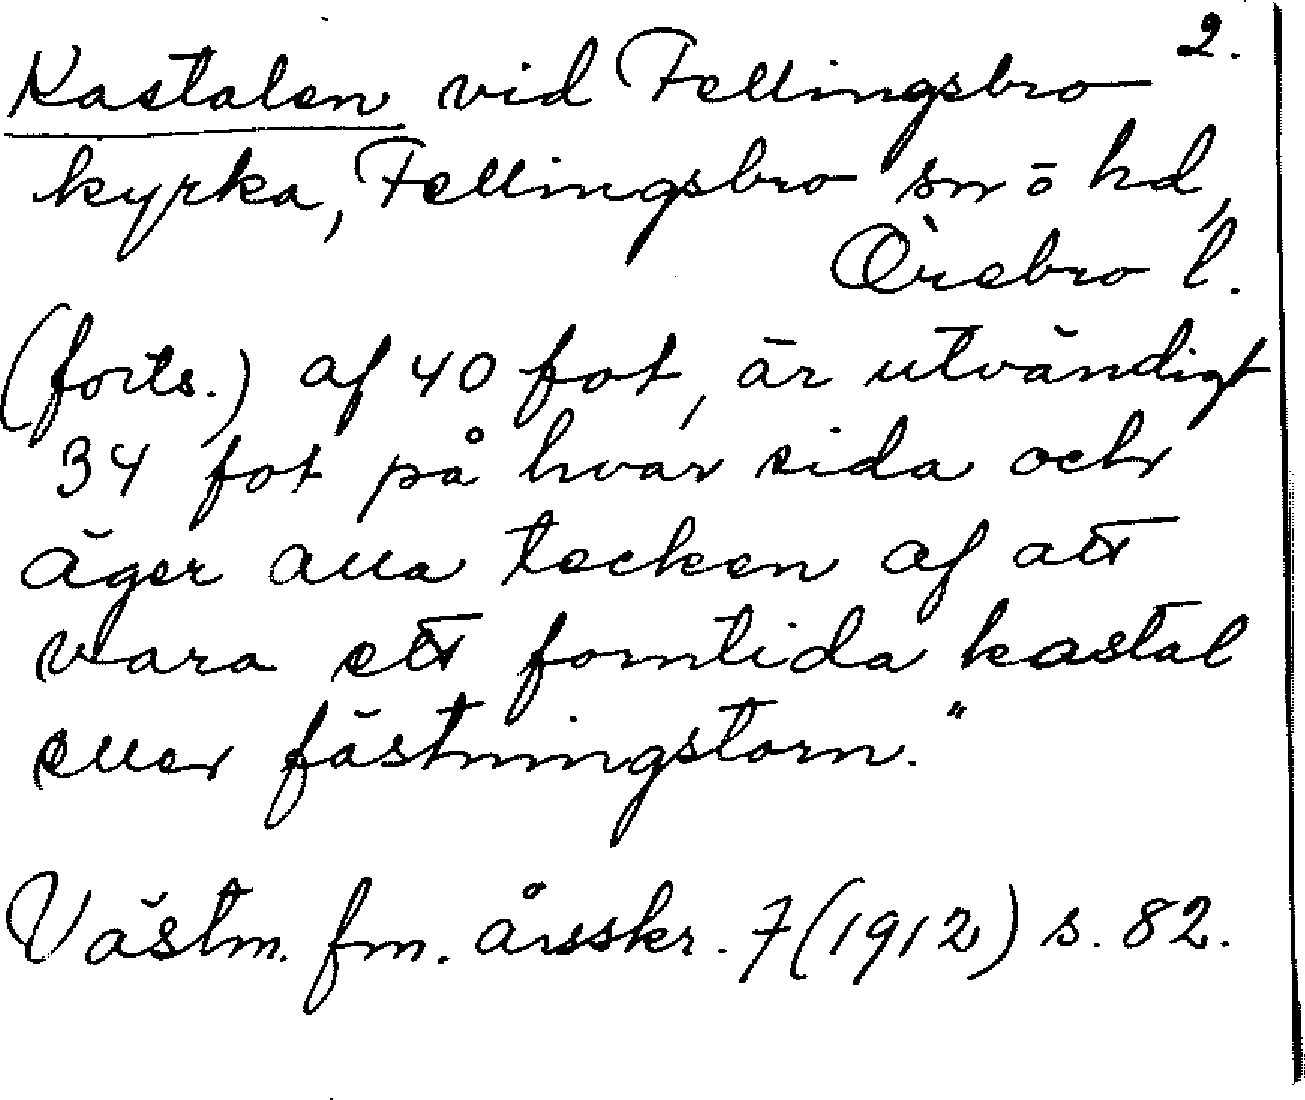 2.
Kastalen vid Fellingsbro
kyrka, Fellingsbro sn o hd,
Örebro l.
(forts.) af 40 fot, är utvändigt
34 fot på hvar sida och
äger alla tecken af att
vara ett forntida kastal
eller fästningstorn."
Västm. fm. årsskr. 7 (1912) s. 82.